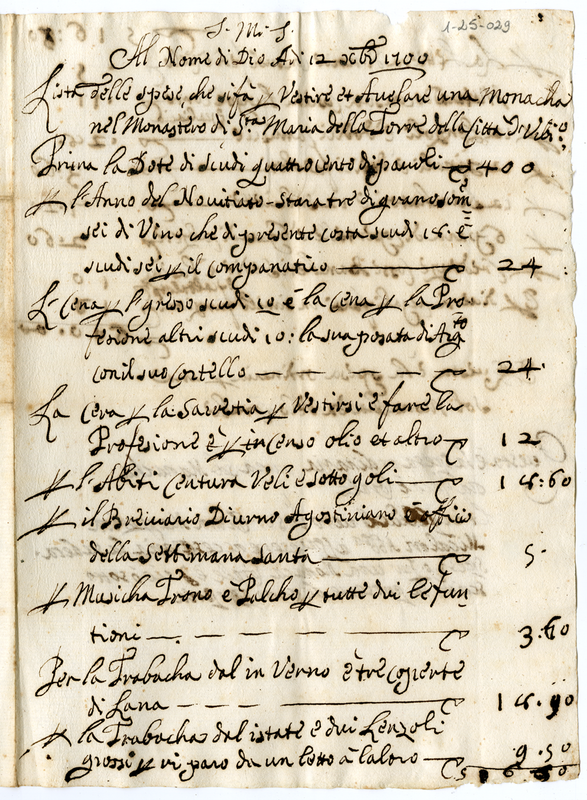 1-25-029
J. M. J.
Al Nome di Dio Adi 12 Xbre 1700
Lista delle spese che si fà p Vestire et Auelare una Monacha
nel Monastero di Sta Maria della Torre della Citta
Prima la Dote di scudi quattrocento di pauoli 400
p l'Anno del Nouitiato stara tre di grano som
sei di Vino che di presente costa scudi 18. è
scudi sei p il companatico 24
La Cena p l'Igresso scudi 10 è la cena p la Pro
fesione altri scudi 10: la sua posata di Argto
con il suo Cortello 24.
La cera p la Sacrestia p Vestirsi e fare la
Profesione è p incenso olio et altro 12
p l'Abiti centura Veli e sotto goli 18:60
p il Breviario Diurno Agostiniano è offitio
della Settimana Santa 5.
p Musicha Trono è Palcho p tutte dui le fun
tioni 3.60
Per la Trabacha dal in Verno è tre coperte
di Lana 18.90
p la Trabacha dal istate e dui Lenzoli
grossi p vi paro da un letto à laloro 9.50